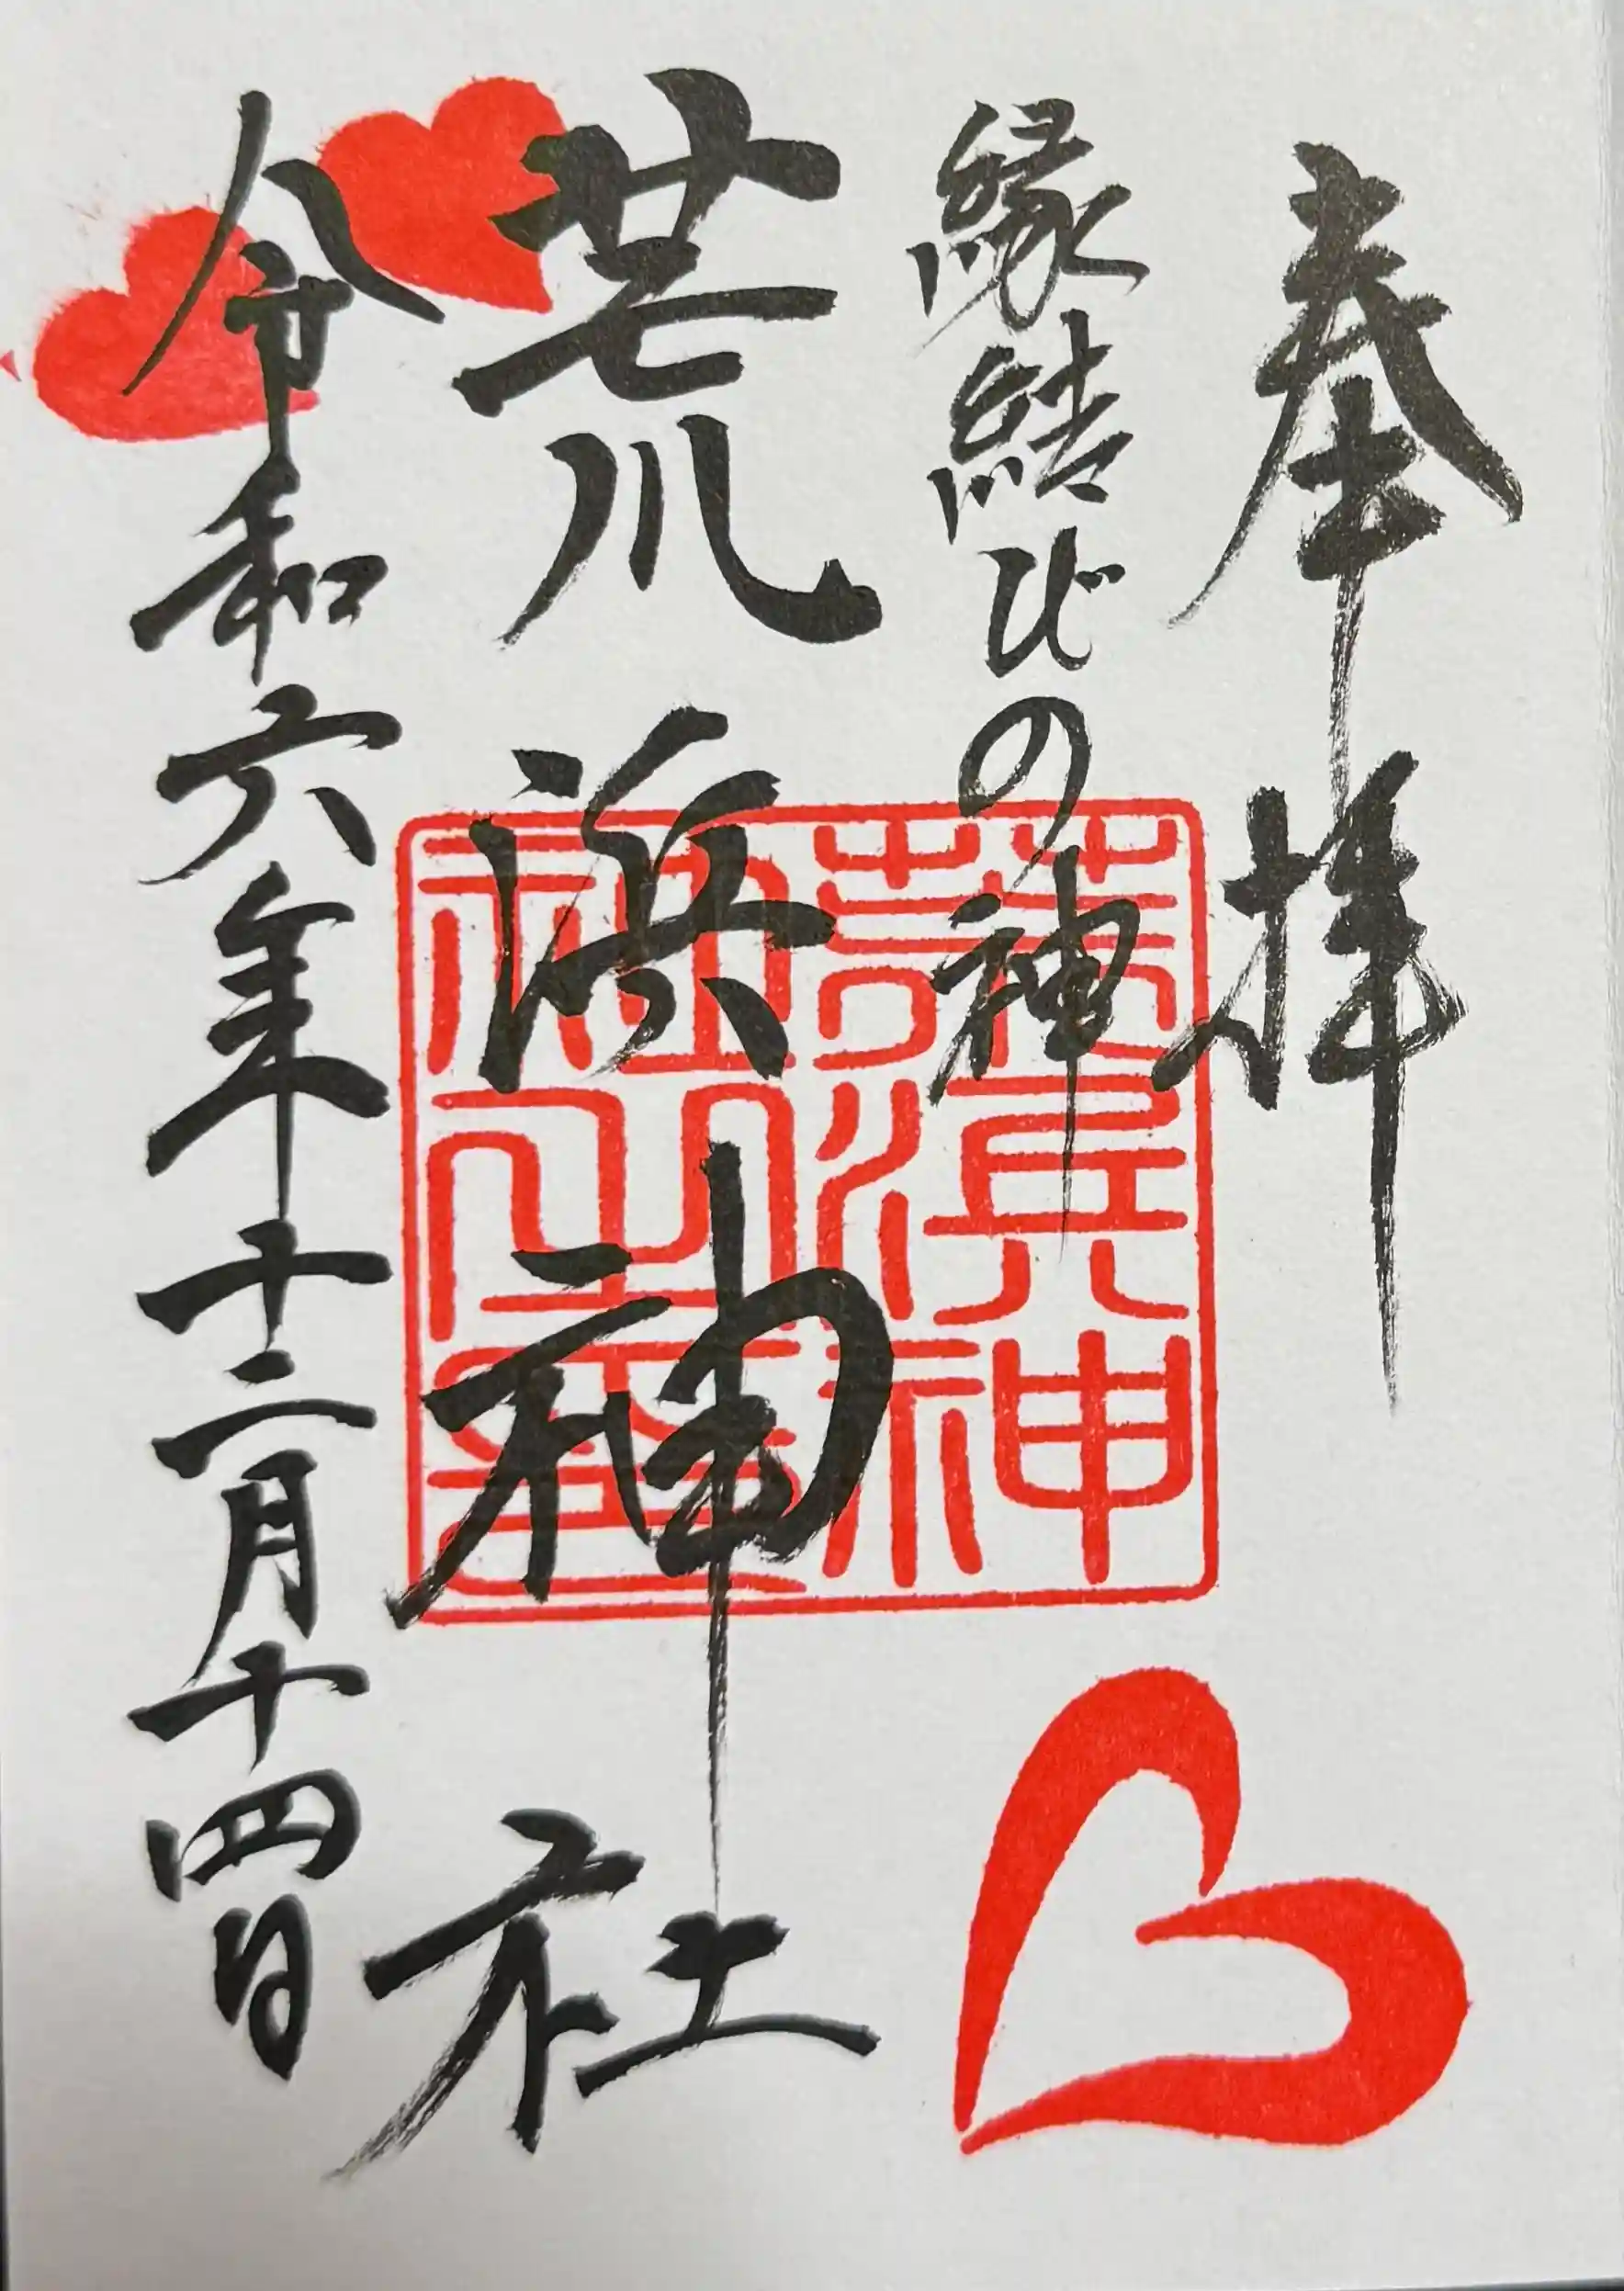 奉拝
縁結びの神
荒浜神社
令和六年十二月十四日
荒濱神
社之璽